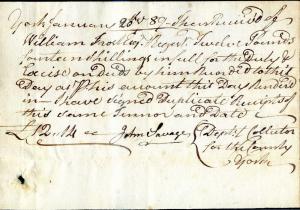 York January 26th 89 - Then received of
William Scott Esqr. Twelve Pounds
fourteen Shillings in full for the Duty &
Excise on by him to this
Day as this amount this Day handed
in - I have signed Duplicate Receipts of
this same Tennor and Date
£12..14 John Savage Dept. Collector
for the County
York